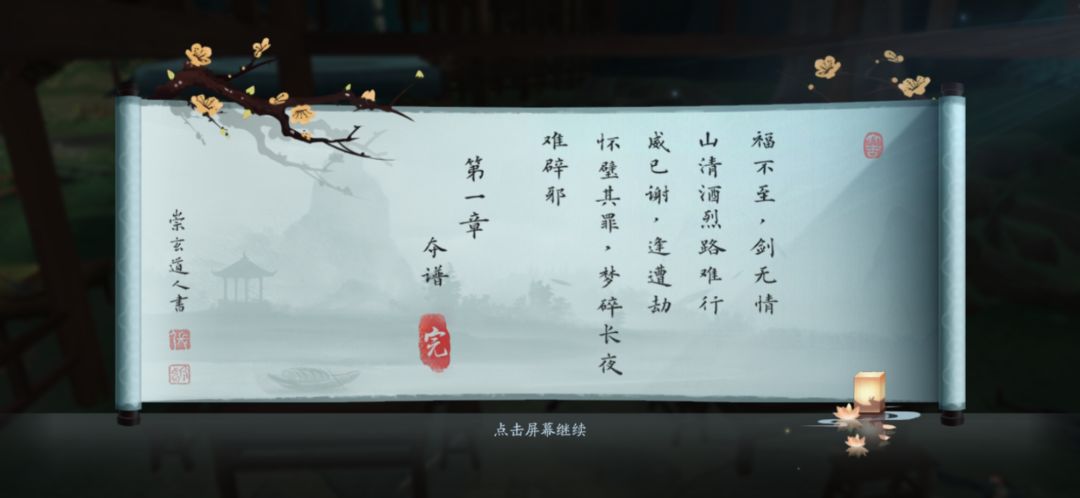 福不至，剑无情
山清酒烈路难行
威已谢，逢遭劫
怀璧其罪，梦碎长夜
难辟邪
第一章
夺谱
完
崇玄道人书
点击屏幕继续